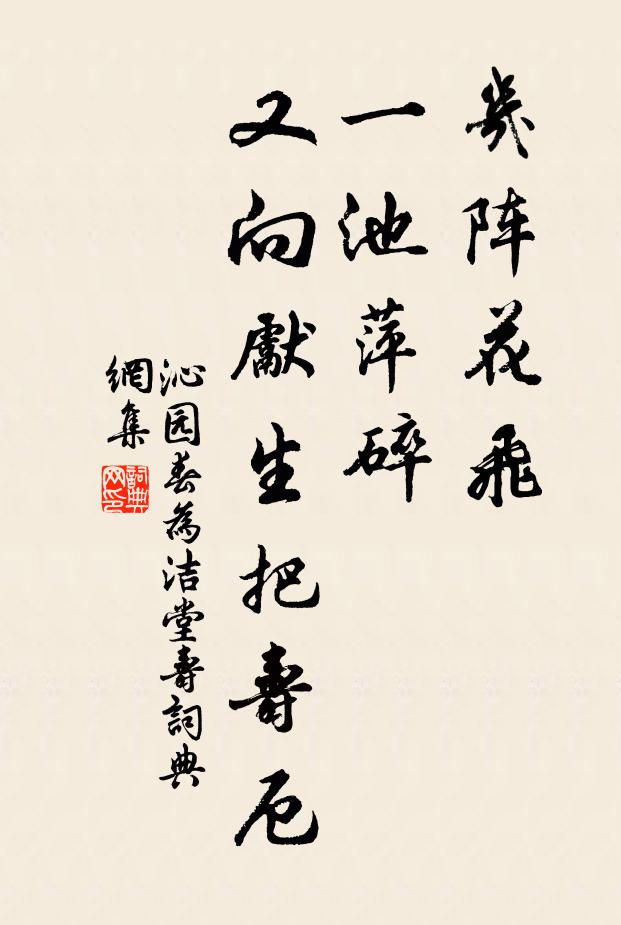 幾阵花飛
一池萍碎
又向獻生把壽卮
沁园春為洁堂壽詞典
網集
詞典网印